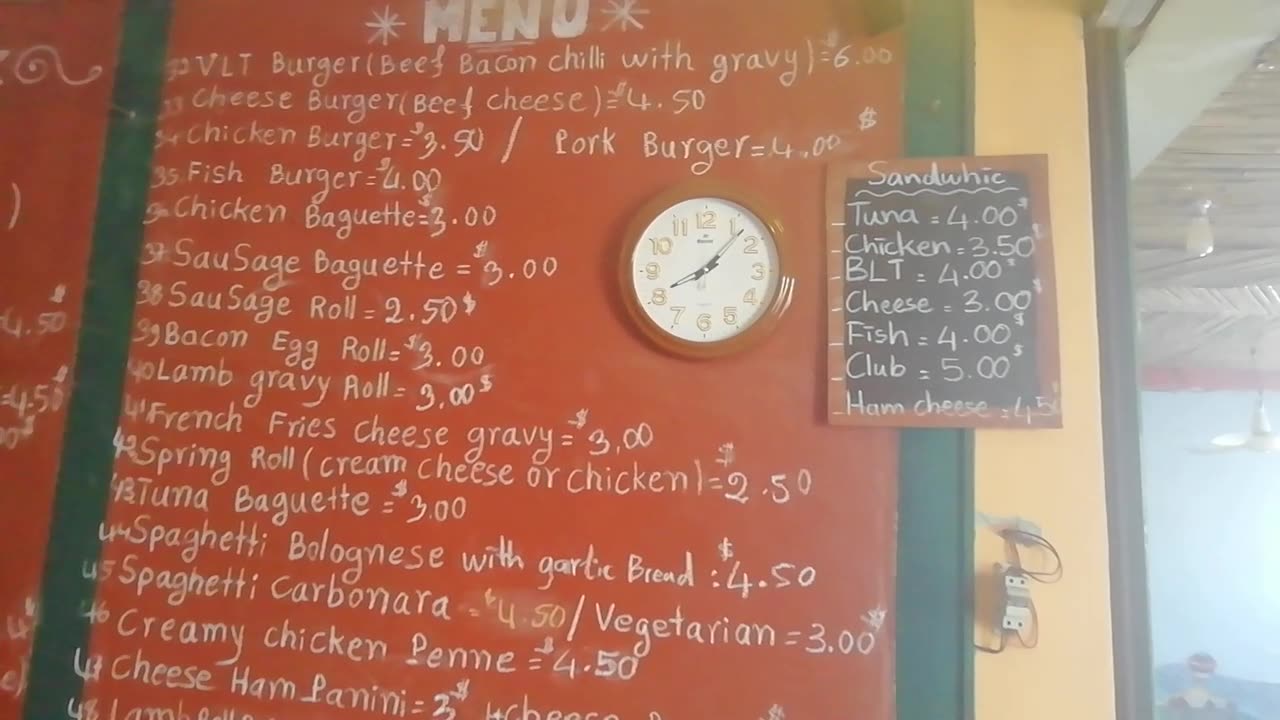 MENU
VLT Burger (Beef Bacon chilli with gravy) = $6.00
33 Cheese Burger (Beef cheese) = $4.50
34 Chicken Burger = $3.50 / Pork Burger = 4.00 $
35 Fish Burger = $4.00
Chicken Baguette = $3.00
37 SauSage Baguette = $3.00
38 SauSage Roll = 2.50 $
39 Bacon Egg Roll = $3.00
40 Lamb gravy Roll = 3.00 $
41 French Fries cheese gravy = $3.00
42 Spring Roll (cream cheese or chicken) = $2.50
43 Tuna Baguette = $3.00
44 Spaghetti Bolognese with garlic Bread : $4.50
45 Spaghetti Carbonara = $4.50 / Vegetarian = 3.00 $
46 Creamy chicken Penne = $4.50
47 Cheese Ham Panini = 3 $
48 Lamb
Sandwhic
- Tuna = 4.00 $
- Chicken = 3.50 $
- BLT = 4.00 $
- Cheese = 3.00 $
- Fish = 4.00 $
- Club = 5.00 $
- Ham cheese = 4.5
12
1
2
3
4
5
6
7
8
9
10
11
=4.50 $
=4.50 $